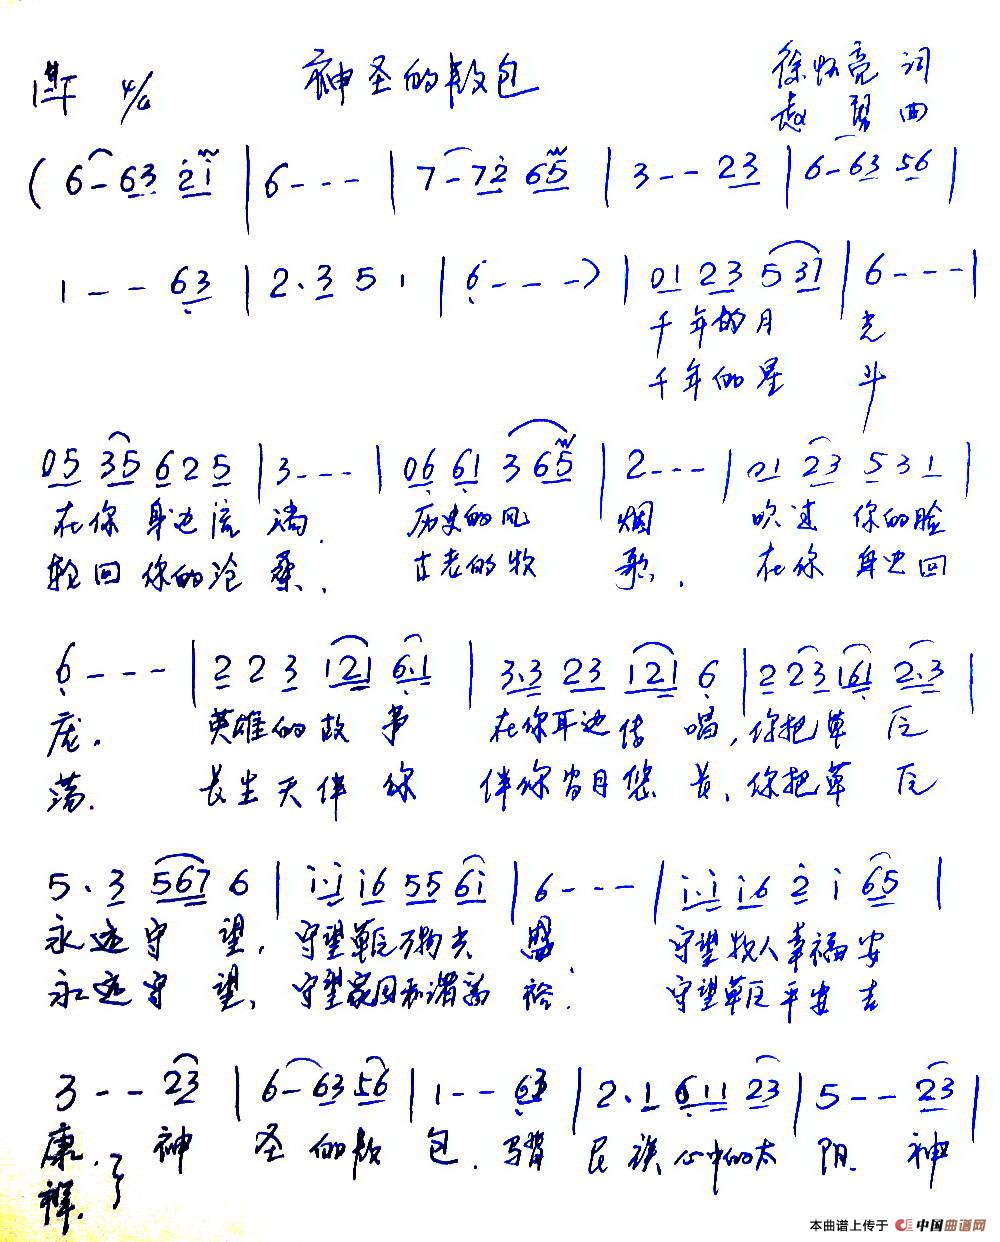 4/4 神圣的敖包 徐怀亮 词
曲
( 6 - 63 2i | 6 - - - | 7 - 72 65 | 3 - - 23 | 6 - 63 56 |
1 - - 63 | 2 . 3 5 1 | 6 - - - ) | 01 23 5 37 | 6 - - - |
千年的月 光
千年的星 斗
05 35 6 2 5 | 3 - - - | 06 61 3 65 | 2 - - - | 01 23 5 3 1 |
在你身边流淌. 历史的风烟 吹过你的脸
轮回你的沧桑. 古老的牧歌. 在你身边回
6 - - - | 2 2 3 121 6.1 | 3.3 23 121 6 | 2 23 161 2.3 |
庞. 英雄的故事 在你耳边传唱,你把草原
荡. 长生天伴你 伴你 你把草原
5 . 3 567 6 | i.i i6 55 6i | 6 - - - | i.i i6 2 i 65 |
永远守望, 守望草原万物 守望牧人幸福安
永远守望, 守望家园和谐 裕. 守望草原平安吉
3 - - 23 | 6 - 63 56 | 1 - - 63 | 2 . 1 611 23 | 5 - - 23 |
康. 神圣的敖包. 民族心中的太阳. 神
祥.
本曲谱上传于 中国曲谱网